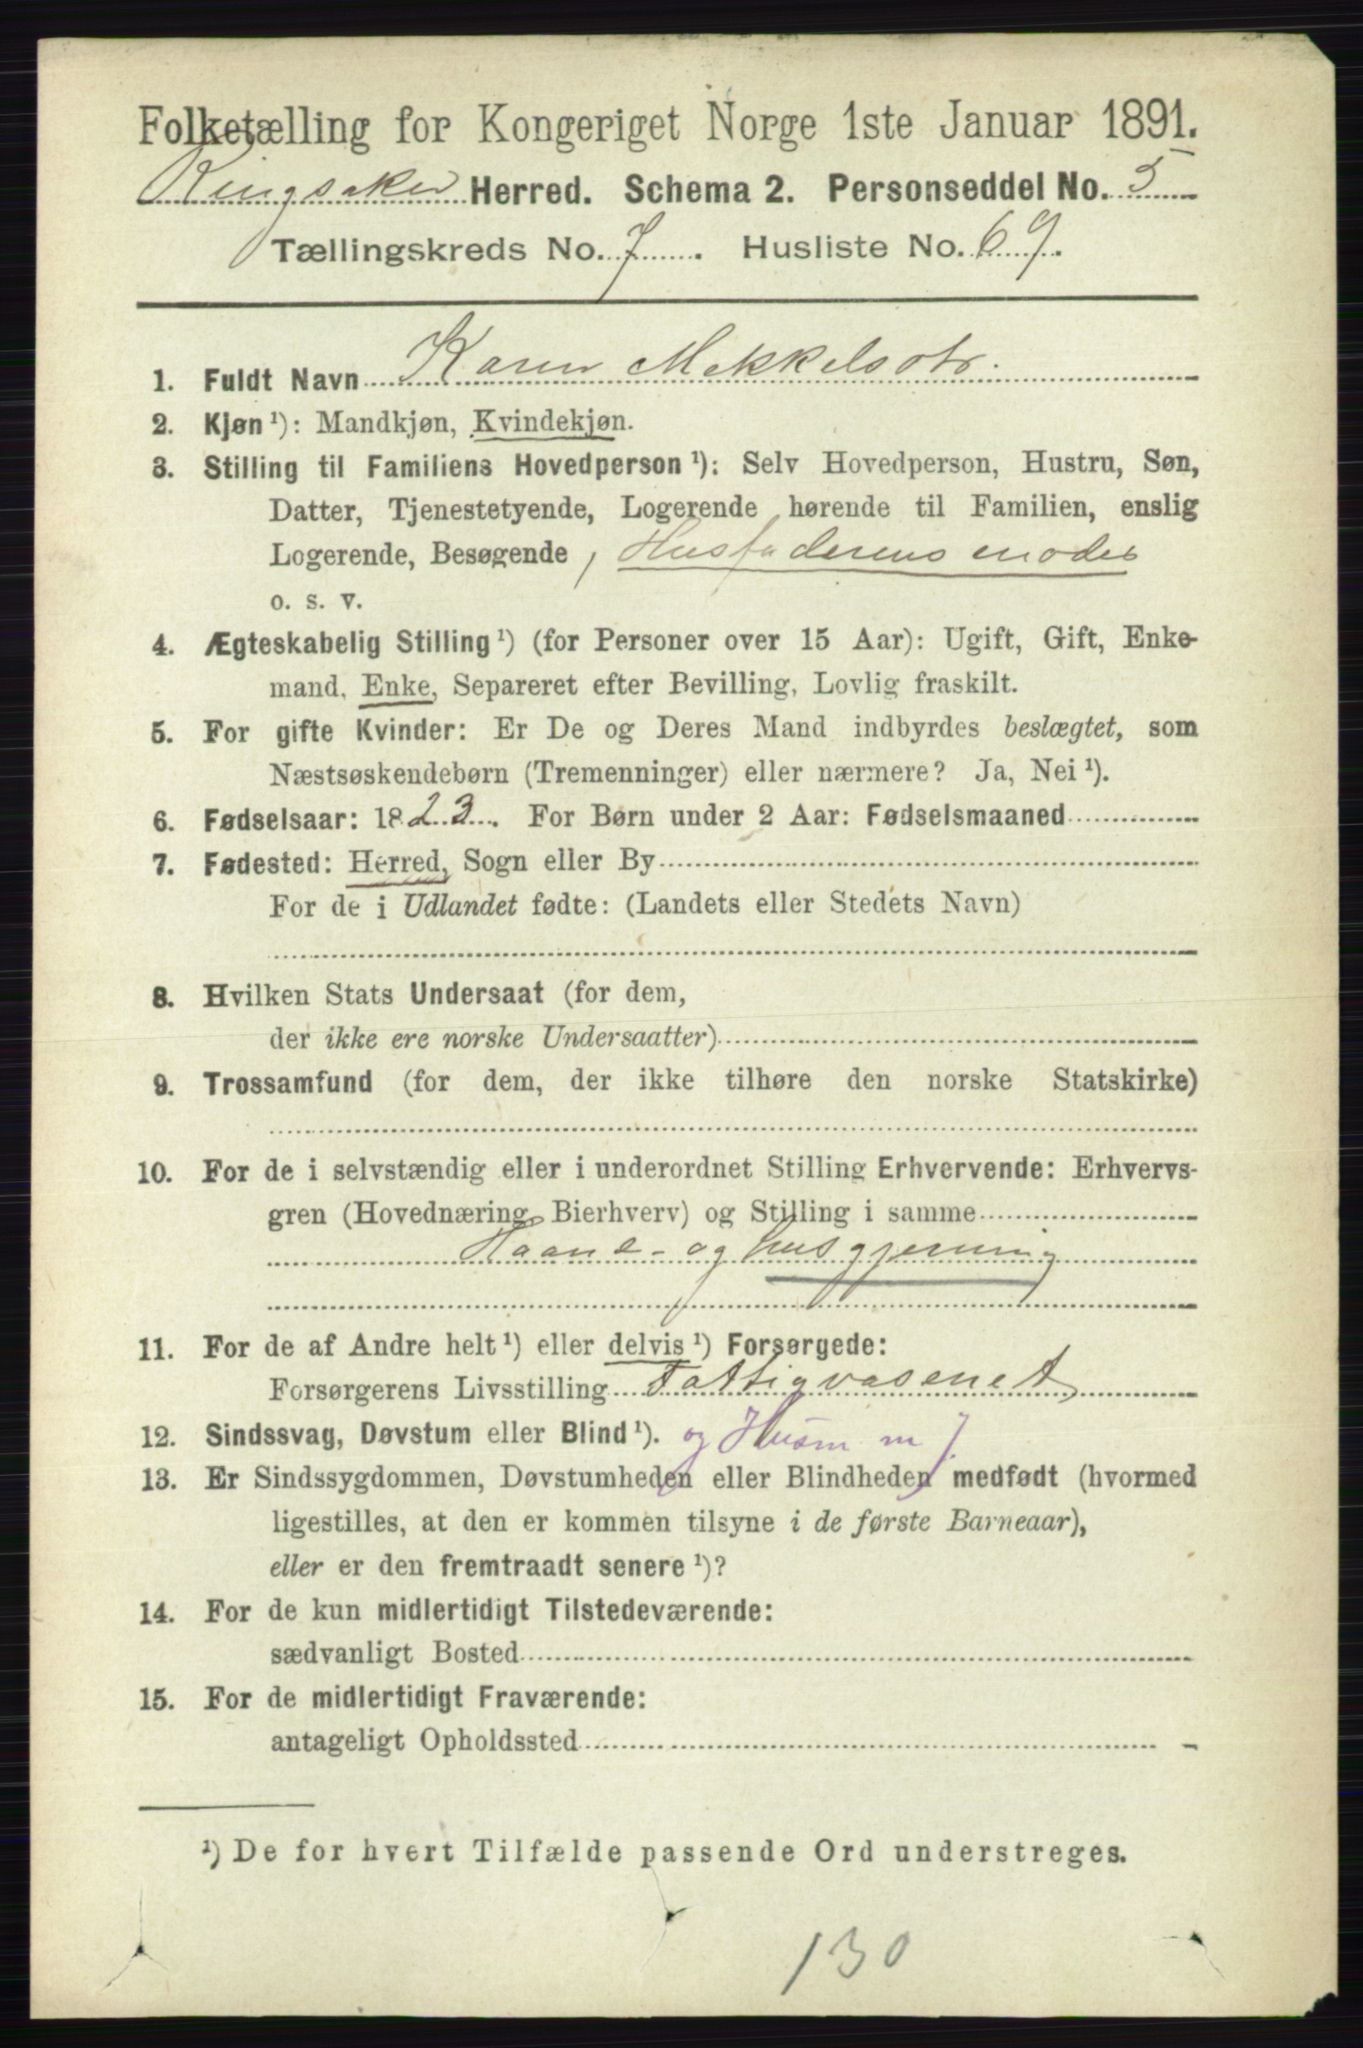 Folketælling for Kongeriget Norge 1ste Januar 1891.
Ringsaker Herred. Schema 2. Personseddel No. 5
Tællingskreds No. 7. Husliste No. 69.
1. Fuldt Navn Karen Mekkelsdtr.
2. Kjøn ¹): Mandkjøn, Kvindekjøn.
3. Stilling til Familiens Hovedperson ¹): Selv Hovedperson, Hustru, Søn,
Datter, Tjenestetyende, Logerende hørende til Familien, enslig
Logerende, Besøgende, Husfaderens moder
o. s. v.
4. Ægteskabelig Stilling ¹) (for Personer over 15 Aar): Ugift, Gift, Enke-
mand, Enke, Separeret efter Bevilling, Lovlig fraskilt.
5. For gifte Kvinder: Er De og Deres Mand indbyrdes beslægtet, som
Næstsøskendebørn (Tremenninger) eller nærmere? Ja, Nei ¹).
6. Fødselsaar: 1823. For Børn under 2 Aar: Fødselsmaaned
7. Fødested: Herred, Sogn eller By
For de i Udlandet fødte: (Landets eller Stedets Navn)
8. Hvilken Stats Undersaat (for dem,
der ikke ere norske Undersaatter)
9. Trossamfund (for dem, der ikke tilhøre den norske Statskirke)
10. For de i selvstændig eller i underordnet Stilling Erhvervende: Erhvervs-
gren (Hovednæring, Bierhverv) og Stilling i samme
Haand- og husgjerning
11. For de af Andre helt ¹) eller delvis ¹) Forsørgede:
Forsørgerens Livsstilling Fattigvæsenet
12. Sindssvag, Døvstum eller Blind ¹). og Husm m j
13. Er Sindssygdommen, Døvstumheden eller Blindheden medfødt (hvormed
ligestilles, at den er kommen tilsyne i de første Barneaar),
eller er den fremtraadt senere ¹)?
14. For de kun midlertidigt Tilstedeværende:
sædvanligt Bosted
15. For de midlertidigt Fraværende:
antageligt Opholdssted
¹) De for hvert Tilfælde passende Ord understreges.
130